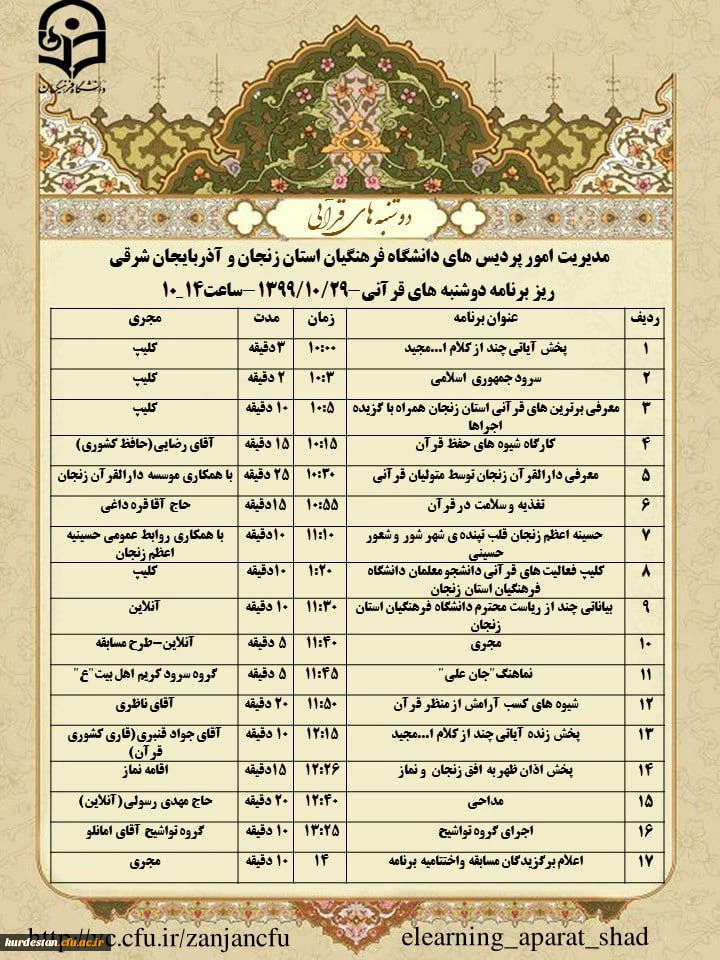 دانشگاه فرهنگیان
دوشنبه های قرآنی
مدیریت امور پردیس های دانشگاه فرهنگیان استان زنجان و آذربایجان شرقی
ریز برنامه دوشنبه های قرآنی-۱۳۹۹/۱۰/۲۹ -ساعت۱۴_۱۰
ردیف عنوان برنامه زمان مدت مجری
۱ پخش آیاتی چند از کلام ا...مجید ۱۰:۰۰ ۳دقیقه کلیپ
۲ سرود جمهوری اسلامی ۱۰:۳ ۲ دقیقه کلیپ
۳ معرفی برترین های قرآنی استان زنجان همراه با گزیده اجراها ۱۰:۵ ۱۰ دقیقه کلیپ
۴ کارگاه شیوه های حفظ قرآن ۱۰:۱۵ ۱۵ دقیقه آقای رضایی(حافظ کشوری)
۵ معرفی دارالقرآن زنجان توسط متولیان قرآنی ۱۰:۳۰ ۲۵ دقیقه با همکاری موسسه دارالقرآن زنجان
۶ تغذیه و سلامت در قرآن ۱۰:۵۵ ۱۵دقیقه حاج آقا قره داغی
۷ حسینه اعظم زنجان قلب تپنده ی شهر شور و شعور حسینی ۱۱:۱۰ ۱۰دقیقه با همکاری روابط عمومی حسینیه اعظم زنجان
۸ کلیپ فعالیت های قرآنی دانشجو معلمان دانشگاه فرهنگیان استان زنجان ۱:۲۰ ۱۰دقیقه کلیپ
۹ بیاناتی چند از ریاست محترم دانشگاه فرهنگیان استان زنجان ۱۱:۳۰ ۱۰ دقیقه آنلاین
۱۰ مجری ۱۱:۴۰ ۵ دقیقه آنلاین-طرح مسابقه
۱۱ نماهنگ"جان علی" ۱۱:۴۵ ۵ دقیقه گروه سرود کریم اهل بیت"ع"
۱۲ شیوه های کسب آرامش از منظر قرآن ۱۱:۵۰ ۲۰ دقیقه آقای ناظری
۱۳ پخش زنده آیاتی چند از کلام ا...مجید ۱۲:۱۵ ۱۰ دقیقه آقای جواد قنبری(قاری کشوری قرآن)
۱۴ پخش اذان ظهر به افق زنجان و نماز ۱۲:۲۶ ۱۵دقیقه اقامه نماز
۱۵ مداحی ۱۲:۴۰ ۲۰ دقیقه حاج مهدی رسولی(آنلاین)
۱۶ اجرای گروه تواشیح ۱۳:۲۵ ۱۰ دقیقه گروه تواشیح آقای امانلو
۱۷ اعلام برگزیدگان مسابقه واختتامیه برنامه ۱۴ ۱۰ دقیقه مجری
http://vc.cfu.ir/zanjancfu elearning_aparat_shad
kurdestan.cfu.ac.ir